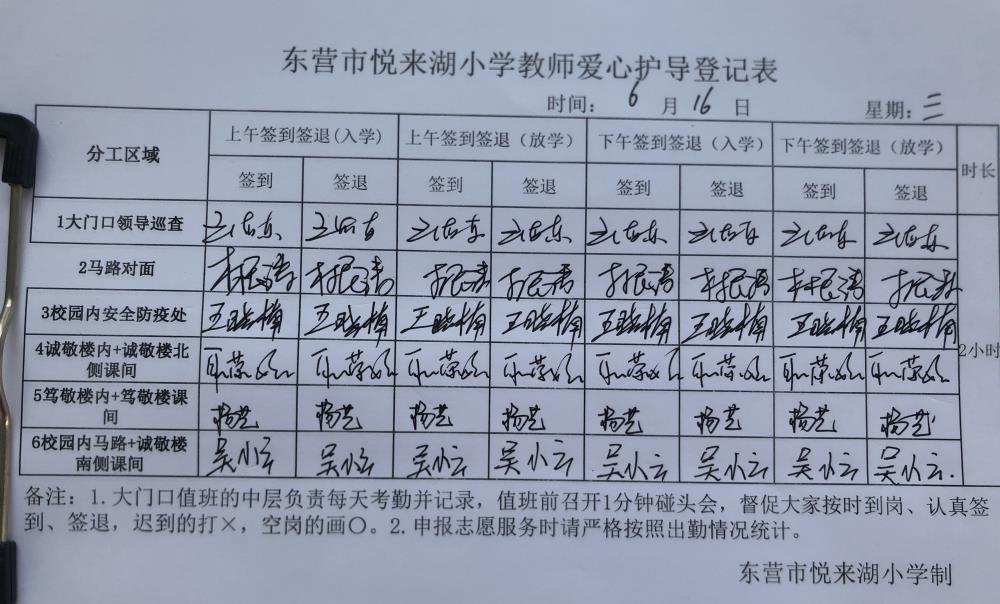 东营市悦来湖小学教师爱心护导登记表
时间： 6 月 16 日 星期：三
分工区域 上午签到签退(入学) 上午签到签退（放学） 下午签到签退（入学） 下午签到签退（放学） 时长
签到 签退 签到 签退 签到 签退 签到 签退
1大门口领导巡查
2马路对面
3校园内安全防疫处 王晓楠 王晓楠 王晓楠 王晓楠 王晓楠 王晓楠 王晓楠 王晓楠
2小时
4诚敬楼内+诚敬楼北
侧课间
5笃敬楼内+笃敬楼课
间 杨艺 杨艺 杨艺 杨艺 杨艺 杨艺 杨艺 杨艺
6校园内马路+诚敬楼
南侧课间 吴小云 吴小云 吴小云 吴小云 吴小云 吴小云 吴小云 吴小云
备注：1.大门口值班的中层负责每天考勤并记录，值班前召开1分钟碰头会，督促大家按时到岗、认真签
到、签退，迟到的打×，空岗的画〇。2.申报志愿服务时请严格按照出勤情况统计。
东营市悦来湖小学制